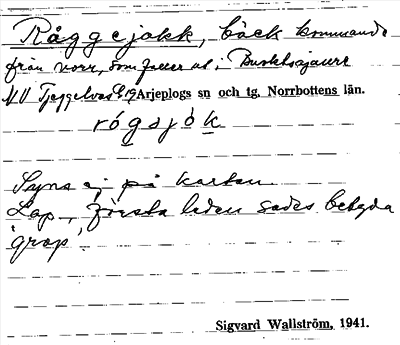 Råggejokk, bäck kommande
från norr, som faller ut i Buokksajaure
NV Tjeggelvas Arjeplogs sn och tg. Norrbottens län.
rógsjók
Syns ej på kartan
Lap., första leden sades betyda
'grop'
Sigvard Wallström, 1941.